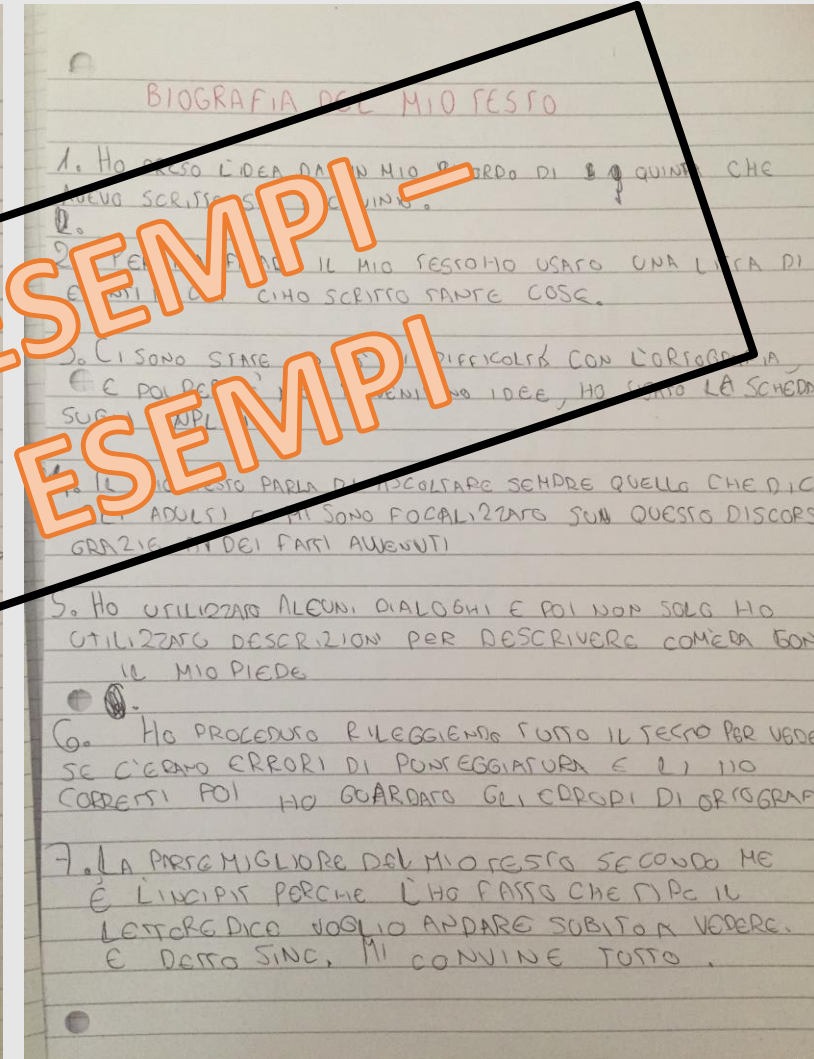 BIOGRAFIA DEL MIO TESTO
1. HO PRESO L'IDEA DA UN MIO RICORDO DI QUINTA CHE
AVEVO SCRITTO
2.
2. IL MIO TESTO HO USATO UNA LISTA DI
CI HO SCRITTO TANTE COSE.
ESEMPI –
3. CI SONO STATE DIFFICOLTÀ CON L'ORTOGRAFIA
E POI IDEE, HO LA SCHEDA
ESEMPI
4. IL TESTO PARLA DI ASCOLTARE SEMPRE QUELLO CHE DIC
ADULTI E MI SONO FOCALIZZATO SUM QUESTO DISCORS
GRAZIE DEI FATTI AVVENUTI
5. HO UTILIZZATO ALCUNI DIALOGHI E POI NON SOLO HO
UTILIZZATO DESCRIZION PER DESCRIVERE COM'ERA GON
IL MIO PIEDE
6. HO PROCEDUTO RILEGGIENDO TUTTO IL TESTO PER VEDE
SE C'ERANO ERRORI DI PUNTEGGIATURA E LI HO
CORRETTI POI HO GUARDATO GLI ERRORI DI ORTOGRAF
7. LA PARTE MIGLIORE DEL MIO TESTO SECONDO ME
È L'INCIPIT PERCHE L'HO FATTO CHE TIPO IL
LETTORE DICE VOGLIO ANDARE SUBITO A VEDERE.
E DETTO SINC. MI CONVINE TUTTO.